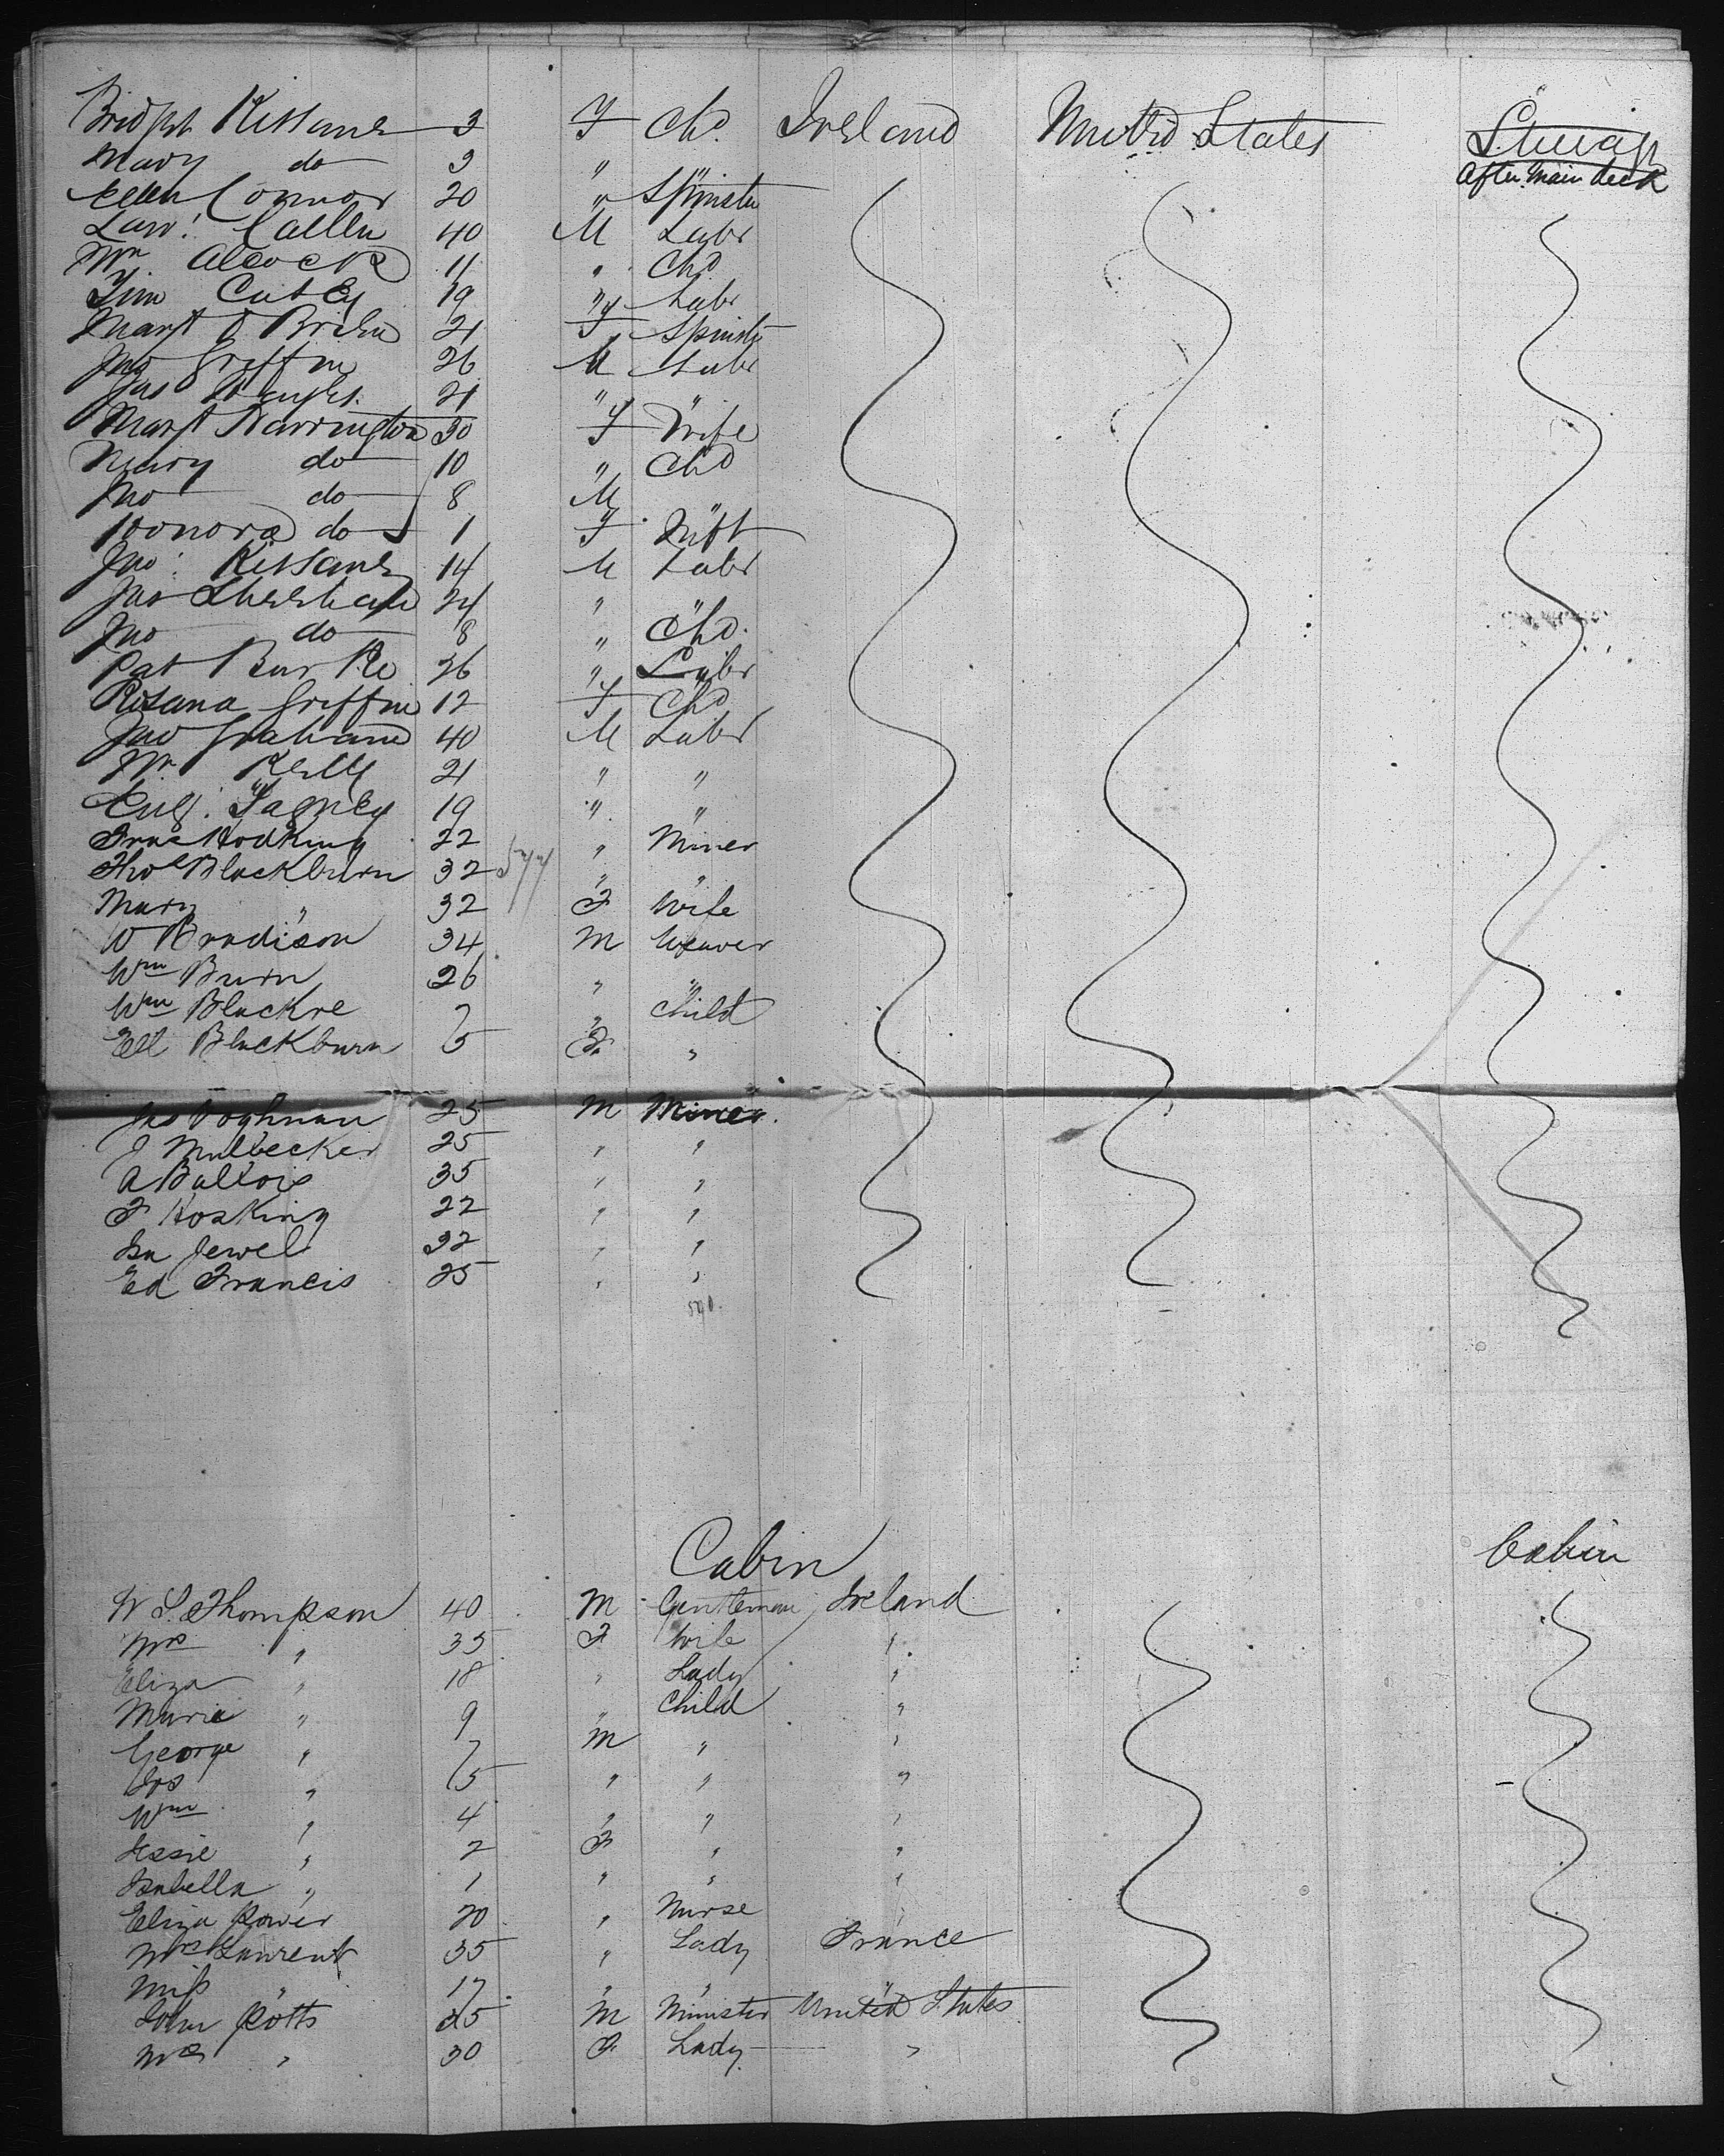 Bridgt Kissane 3 F Chd. Ireland United States Steerage
After Main deck
Mary do 9 " "
Ellen Connor 20 " Spinster
Law: Callen 40 M Labr
Wm Alcock 11 " Chd
Tim Casey 19 " Labr
Margt O Brien 21 F Spinstr
Jno Griffin 26 M Labr
Jas 21 " "
Margt Harrington 30 F Wife
Mary do 10 " Chd
Jno do 8 M "
Honora do 1 F Inft
Jno: Kissane 14 M Labr
Jas Sheehan 24 " "
Jno do 8 " Chd.
Pat Burke 26 " Labr
Rosana Griffin 12 F Chd
Jno Graham 40 M Labr
Wm Kelly 21 " "
Eug: Fagney 19 " "
Frac Hodking 22 " Miner
Tho Blackburn 32 577 " "
Mary " 32 F Wife
W Bradison 34 M Weaver
Wm Burn 26 " "
Wm Blackre 7 " Child
Ell Blackburn 5 F "
Jas Voghnan 25 M Miner.
J Mulbecker 25 " "
A Ballois 35 " "
F Hosking 22 " "
Isa Jewel 32 " "
Ed Francis 25 " "
590.
Cabin Cabin
W S. Thompson 40 M Gentleman Ireland
Mrs " 35 F Wife "
Eliza " 18 " Lady "
Maria " 9 " Child "
George " 7 M " "
Jos " 5 " " "
Wm " 4 " " "
Jessie " 2 F " "
Isabella " 1 " " "
Eliza Power 20 " Nurse "
Mrs Laurent 35 " Lady France
Miss " 17 " " "
John Potts 25 M Minister United States
Mrs " 30 F Lady "